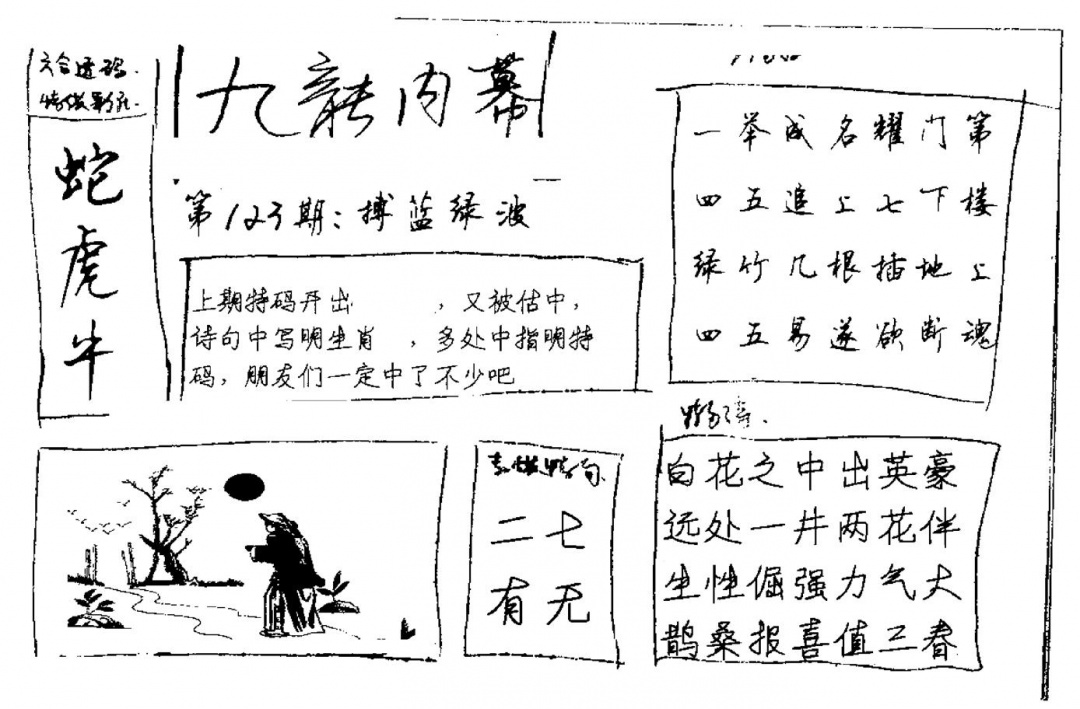 六合透码
蛇
虎
牛
九龍内幕
第123期：搏蓝绿波
上期特码开出 ，又被估中，
诗句中写明生肖 ，多处中指明特
码，朋友们一定中了不少吧
一举成名耀门第
四五追上七下楼
绿竹几根插地上
四五易遂欲断魂
二七
有无
白花之中出英豪
远处一井两花伴
生性倔强力气大
鹊桑报喜值工春